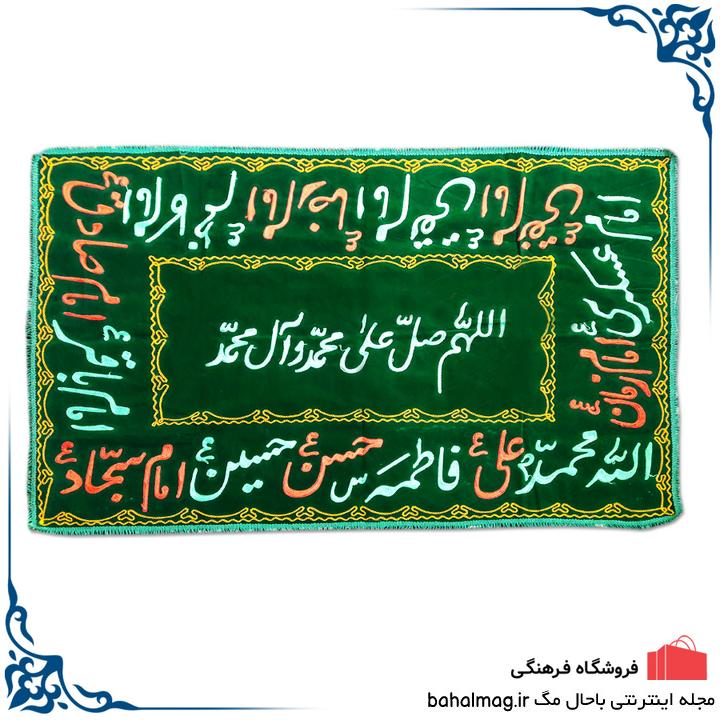 اللهم صلّ علی محمّد و آل محمّد
الله محمدص علی ع فاطمه س حسن ع حسین ع امام سجّاد ع
امام باقر ع امام صادق ع
امام امام رضا ع امام تقی ع امام نقی ع
امام عسکری امام زمان عج
فروشگاه فرهنگی
مجله اینترنتی باحال مگ bahalmag.ir